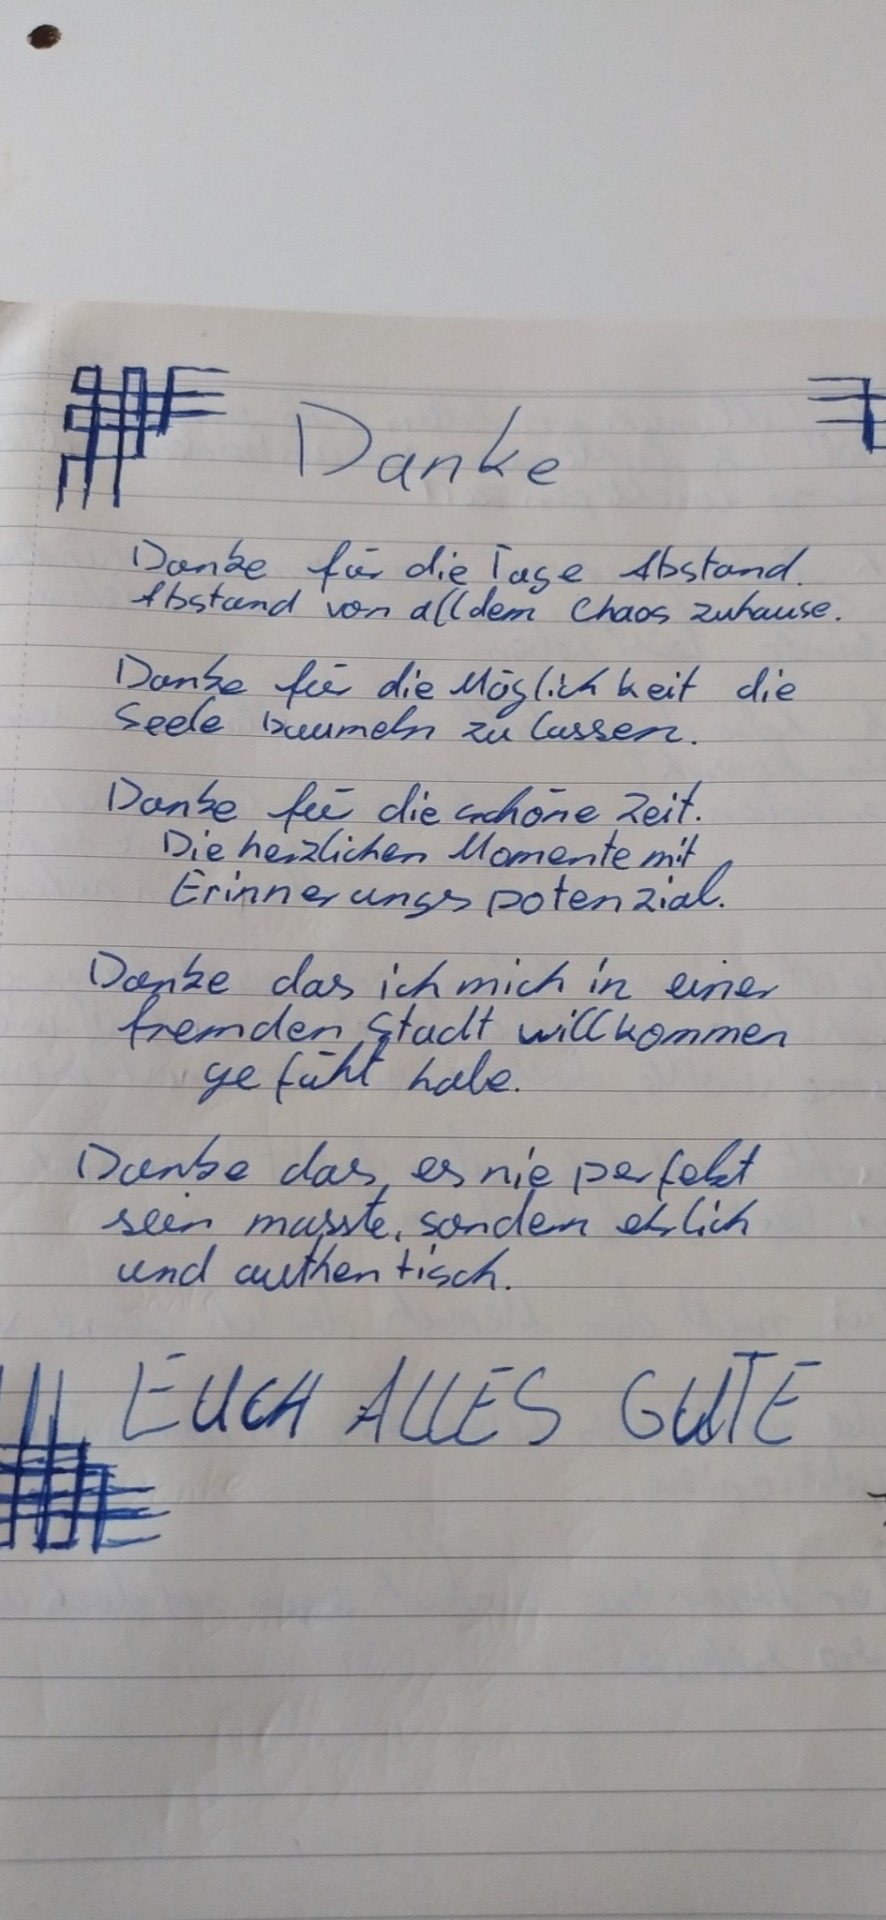 Danke
Danke für die Tage Abstand.
Abstand von all dem Chaos zuhause.
Danke für die Möglichkeit die
Seele baumeln zu lassen.
Danke für die schöne Zeit.
Die herzlichen Momente mit
Erinnerungspotenzial.
Danke das ich mich in einer
fremden Stadt willkommen
gefühlt habe.
Danke das es nie perfekt
sein musste, sondern ehrlich
und authentisch.
EUCH ALLES GUTE